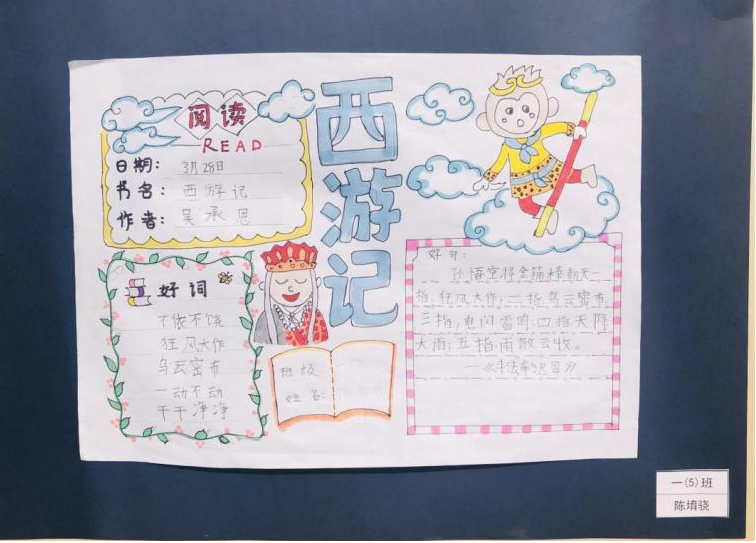 阅读
READ
日期: 3月28日
书名: 西游记
作者: 吴承恩
西游记
好词
不依不饶
狂风大作
乌云密布
一动不动
干干净净
班级:
姓名:
好句:
孙悟空将金箍棒朝天一
指,狂风大作;二指,乌云密布;
三指,电闪雷鸣;四指天降
大雨;五指,雨散云收。
一(5)班
陈堉骁